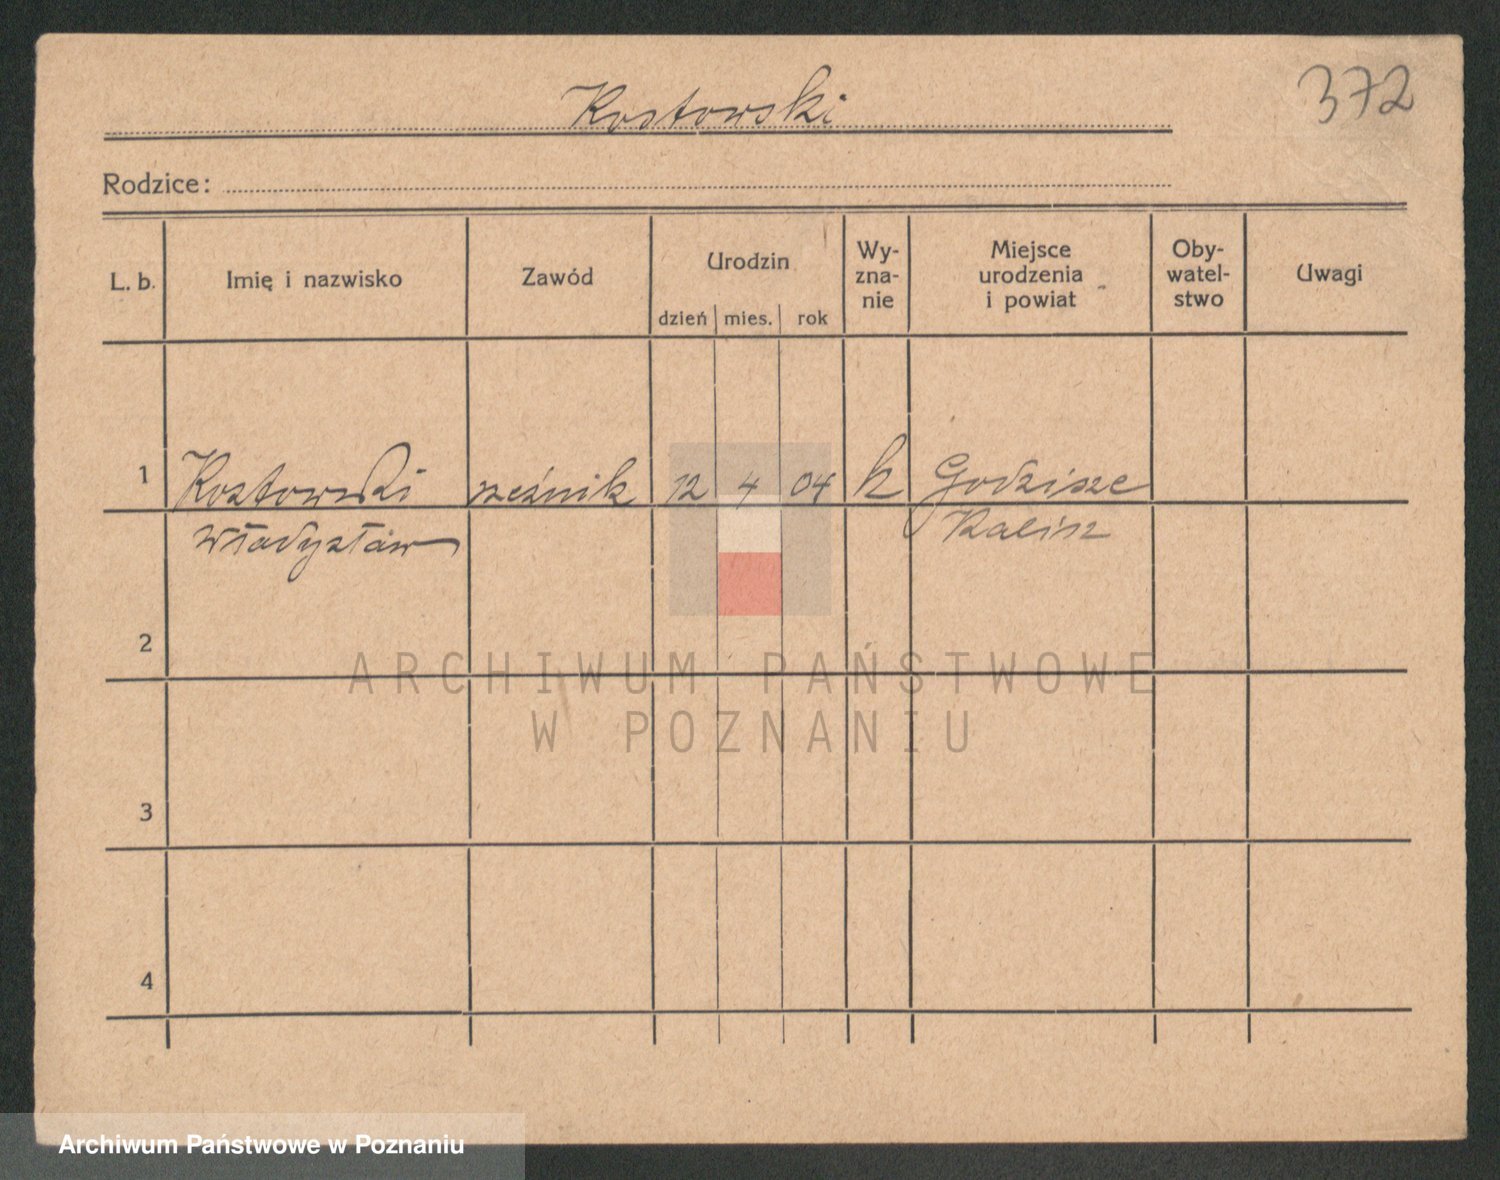 Kostowski
372
Rodzice:
L. b.
Imię i nazwisko
Zawód
Urodzin
dzień mies. rok
Wy-
zna-
nie
Miejsce
urodzenia
i powiat
Oby-
watel-
stwo
Uwagi
1 Kostowski rzeźnik 12 4 04 k Godzisze
Władysław Kalisz
2
3
4
ARCHIWUM PAŃSTWOWE
W POZNANIU
Archiwum Państwowe w Poznaniu